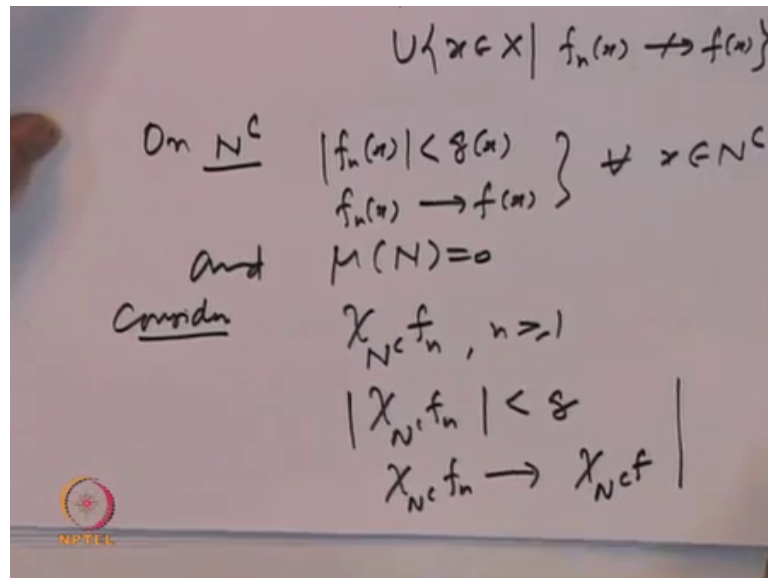 ∪{x∈X| f_n(x) ↛ f(x)}
On N^c |f_n(x)| < g(x) } ∀ x∈N^c
f_n(x) → f(x)
and μ(N)=0
Consider χ_{N^c} f_n, n≥1
|χ_{N^c} f_n| < g
χ_{N^c} f_n → χ_{N^c} f |
NPTEL